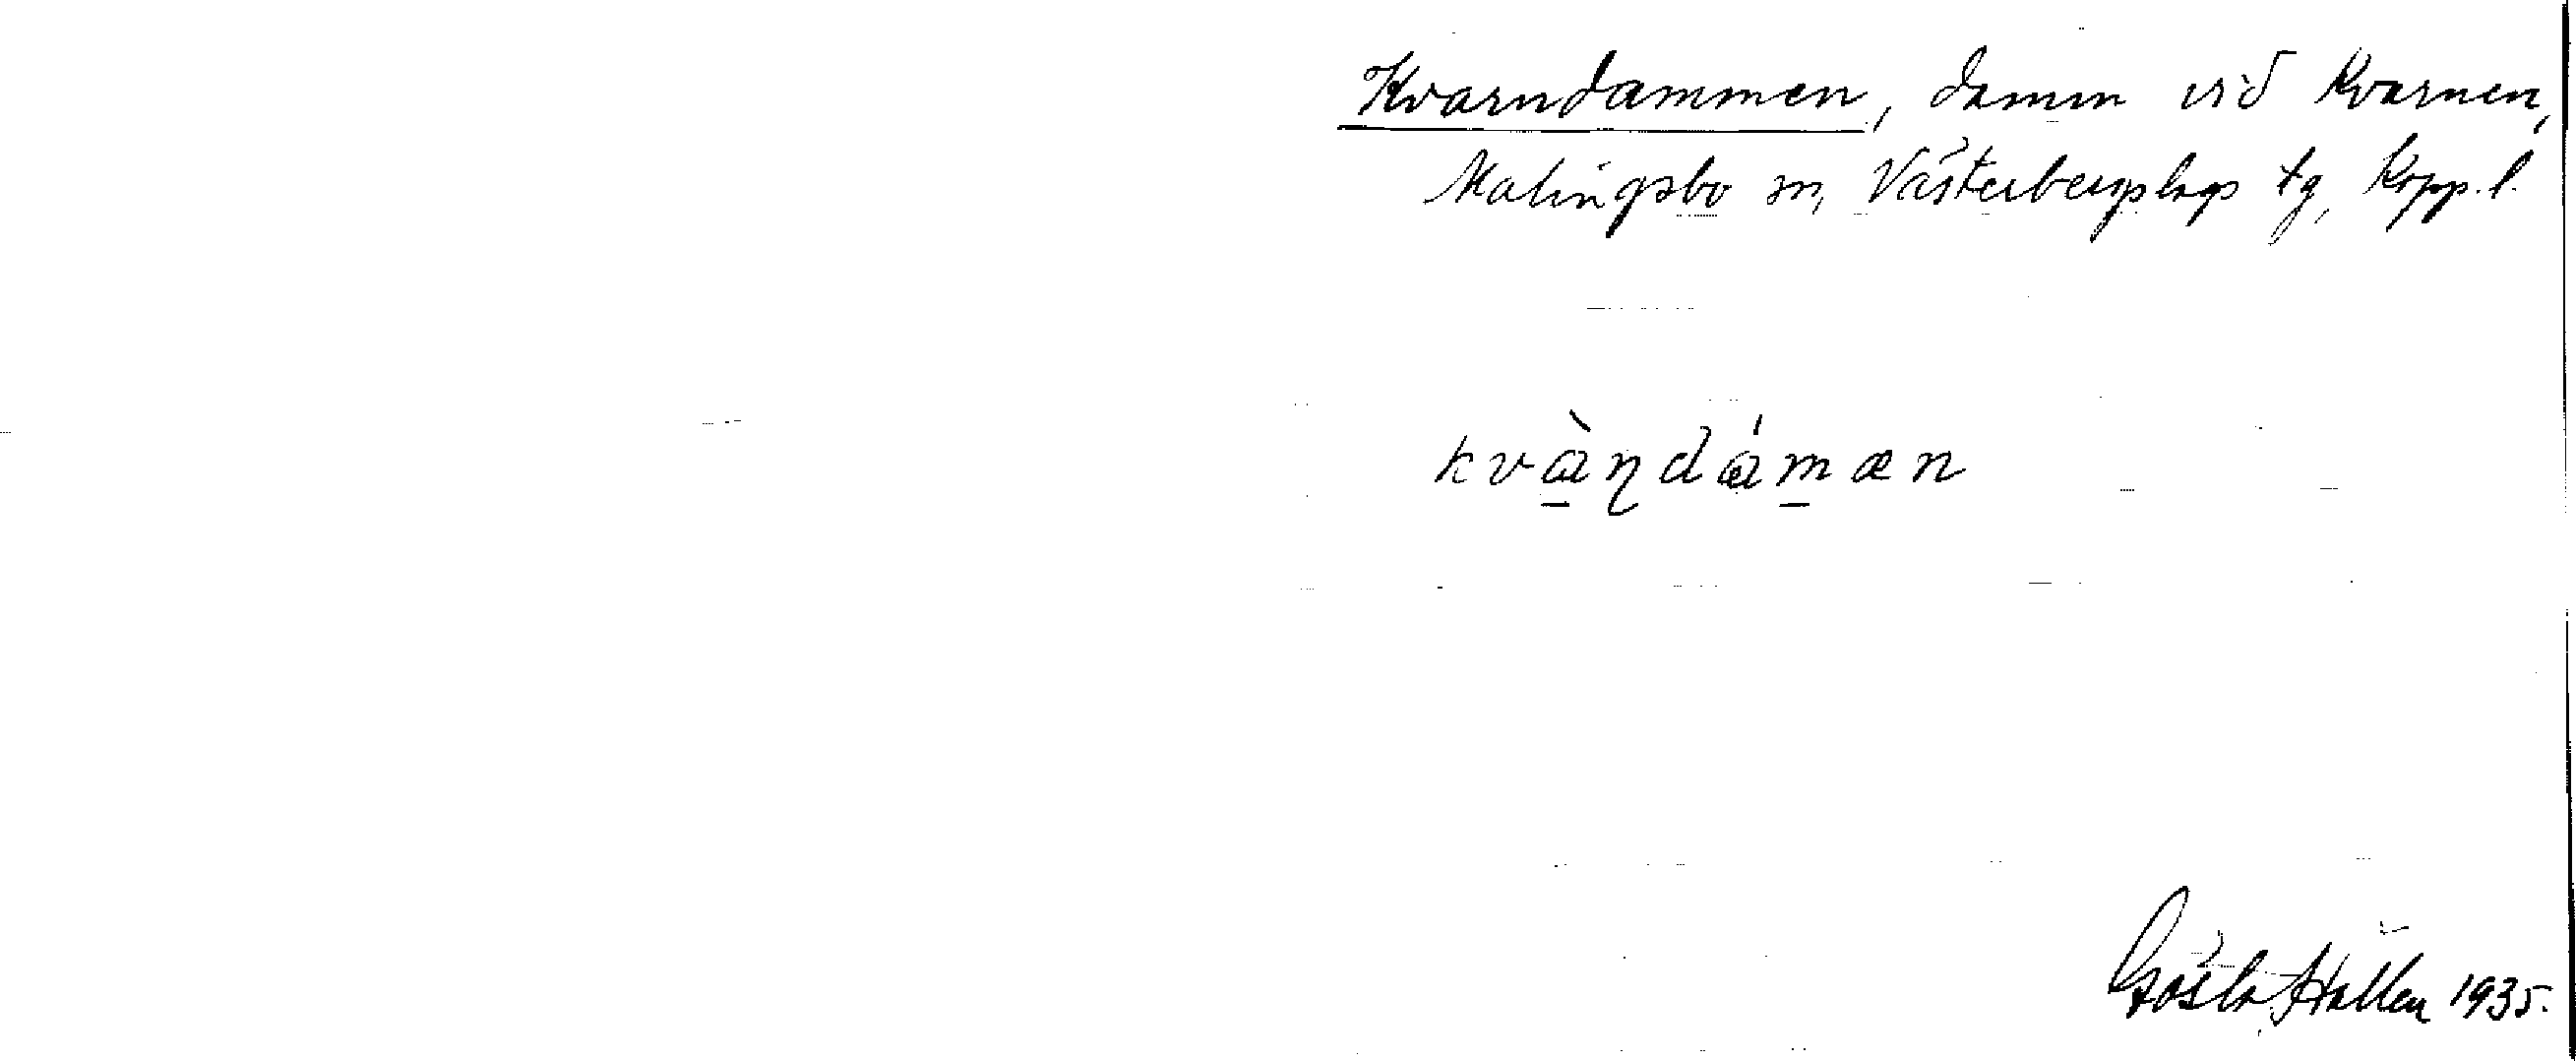 Kvarndammen, damm vid Kvarnen,
Malingsbo sn, Västerbergslags tg, Kopp. l.
kvàṉdámæn
Gösta Hallen 1935.